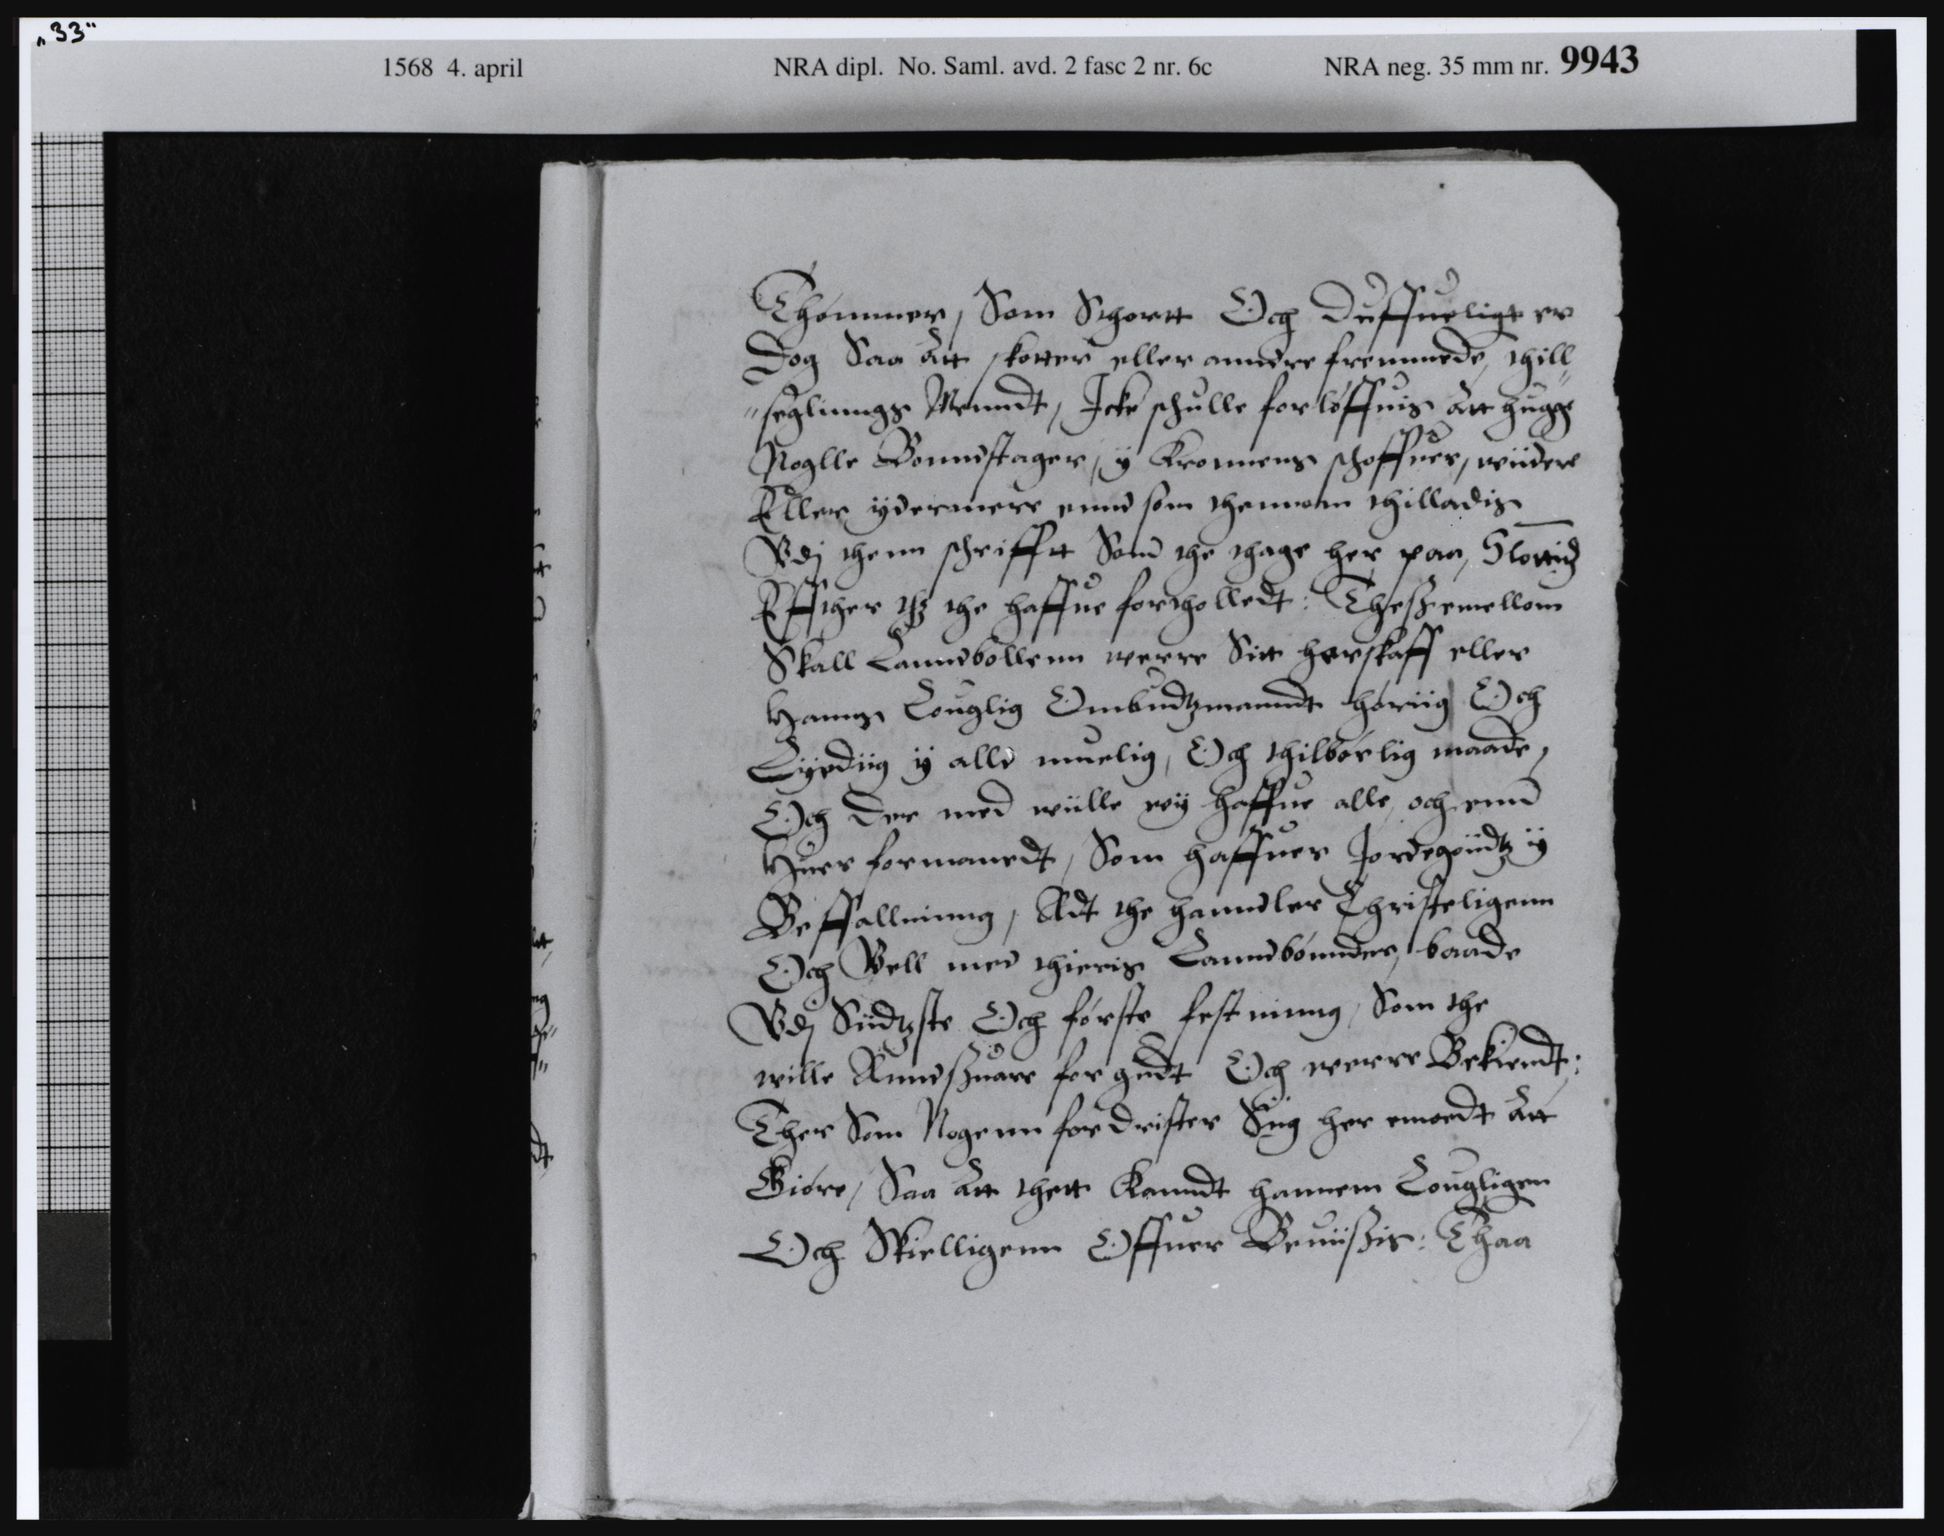 „33“
1568 4. april NRA dipl. No. Saml. avd. 2 fasc 2 nr. 6c NRA neg. 35 mm nr. 9943
Thømmer, Som Schortt Och Duffueligt er
Dog Saa Att skotter eller anndre fremmede, thill
seglinngs Menndt, Icke schulle forløffuis Att hugge
Noglle Bonndstager, ÿ Kronnens schoffuer, wiidere
Eller ÿdermere ennd som thennom thilladis
Vdj thenn schrifftt Som the thage her paa, Slottid
Effther the haffue fortholledt: Thesßemellom
Skall Lanndbollenn werre Sitt herskaff eller
Hanns Louglig Ombudtzmanndt hørrig Och
Lÿediig ÿ alle muelig, Och thilbørlig maade,
Och der med wiille wÿ haffue alle och ennd
Huer formanedt, Som haffuer Jordegoudtz ÿ
Beffallninng, Adt the hanndler Christeligenn
Och Vell med thieris Lanndbønnder, baade
Vdj Siidtzste Och første festninng, Som the
wille Anndsßuare for gudt Och werre Bekiendt:
Ther Som Nogenn fordrister Siig her emoedt Att
Giøre, Saa Att thett Kanndt hannem Lougligen
Och Skielligenn Offuer Beuiisßis: Thaa